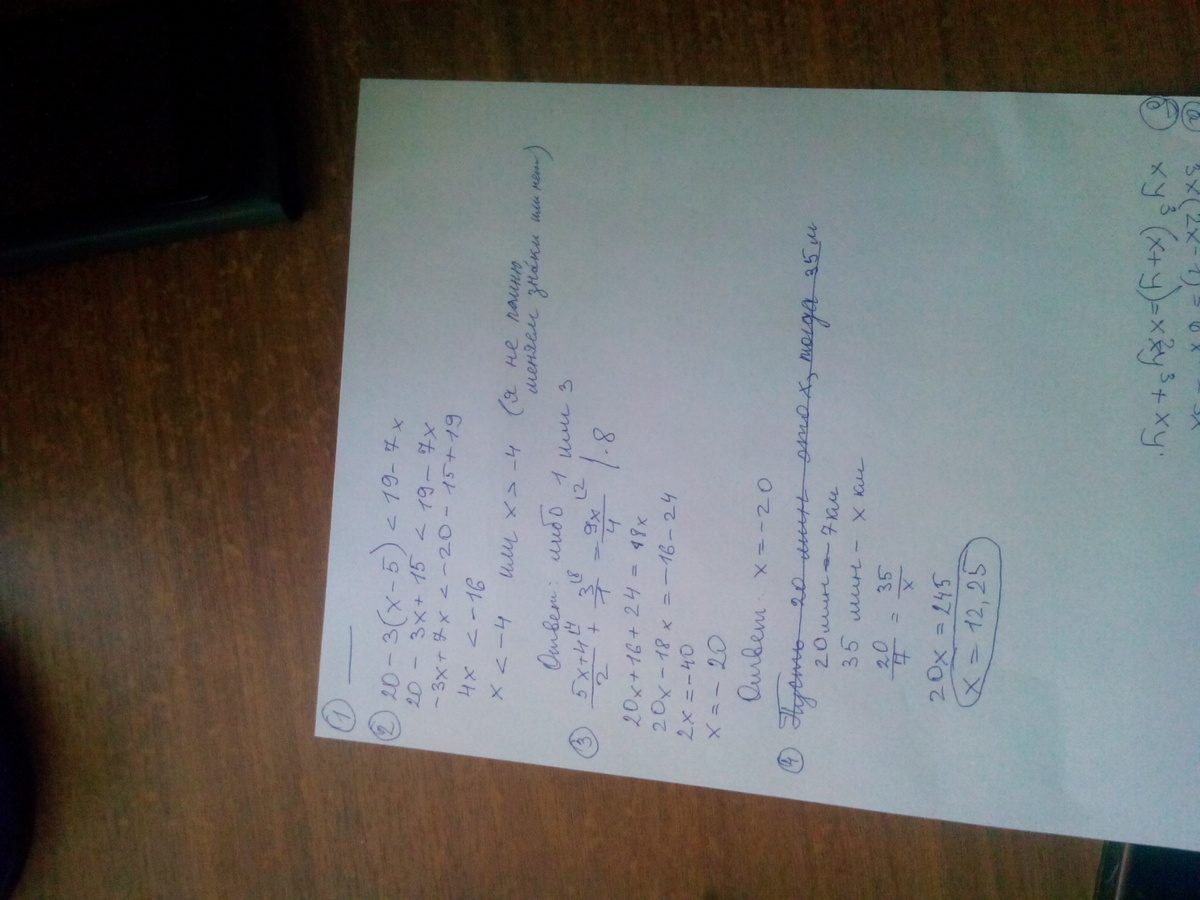 1
2 20 - 3(x - 5) < 19 - 7x
20 - 3x + 15 < 19 - 7x
-3x + 7x < -20 - 15 + 19
4x < -16
x < -4 или x > -4 (я не помню меняем знаки или нет)
Ответ: либо 1 или 3
3 (5x+4)/2 |4 + 3/1 |8 = 9x/4 |2 | · 8
20x + 16 + 24 = 18x
20x - 18x = -16 - 24
2x = -40
x = -20
Ответ: x = -20
4 Пусть 20 мин это x, тогда 35 м
20 мин - 7 км
35 мин - x км
20/7 = 35/x
20x = 245
x = 12,25
б xy³(x+y) = x²y³ + xy
а 3x(2x - 1) = 6x